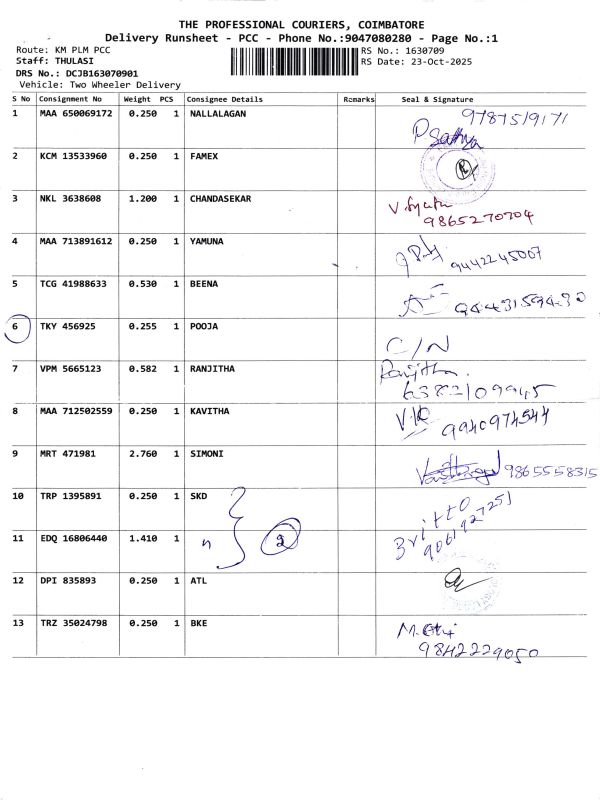 THE PROFESSIONAL COURIERS, COIMBATORE
Delivery Runsheet - PCC - Phone No.:9047080280 - Page No.:1
Route: KM PLM PCC
RS No.: 1630709
Staff: THULASI
RS Date: 23-Oct-2025
DRS No.: DCJB163070901
Vehicle: Two Wheeler Delivery
S No Consignment No Weight PCS Consignee Details Remarks Seal & Signature
1 MAA 650069172 0.250 1 NALLALAGAN 9787519171
P Sathya
2 KCM 13533960 0.250 1 FAMEX
3 NKL 3638608 1.200 1 CHANDASEKAR
9865270704
4 MAA 713891612 0.250 1 YAMUNA
9442245007
5 TCG 41988633 0.530 1 BEENA
9443159430
6 TKY 456925 0.255 1 POOJA
C/N
7 VPM 5665123 0.582 1 RANJITHA Ranjitha.
6382109945
8 MAA 712502559 0.250 1 KAVITHA VK
9940974544
9 MRT 471981 2.760 1 SIMONI
9865558315
10 TRP 1395891 0.250 1 SKD Britto
9061927251
11 EDQ 16806440 1.410 1 n 2
12 DPI 835893 0.250 1 ATL
13 TRZ 35024798 0.250 1 BKE
9842229050